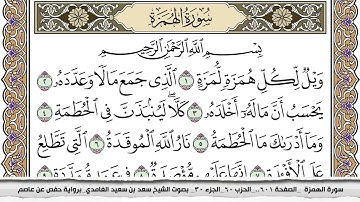 سُورَةُ الهُمَزَةِ
بِسْمِ اللَّهِ الرَّحْمَٰنِ الرَّحِيمِ
وَيْلٌ لِّكُلِّ هُمَزَةٍ لُّمَزَةٍ ١ الَّذِي جَمَعَ مَالًا وَعَدَّدَهُ ٢
يَحْسَبُ أَنَّ مَالَهُ أَخْلَدَهُ ٣ كَلَّا لَيُنبَذَنَّ فِي الْحُطَمَةِ ٤
وَمَا أَدْرَاكَ مَا الْحُطَمَةُ ٥ نَارُ اللَّهِ الْمُوقَدَةُ ٦ الَّتِي تَطَّلِعُ
عَلَى الْأَفْئِدَةِ ٧ إِنَّهَا عَلَيْهِم مُّؤْصَدَةٌ ٨
سورة الهمزة _الصفحة ٦٠١_ الحزب ٦٠_ الجزء ٣٠_ بصوت الشيخ سعد بن سعيد الغامدي _برواية حفص عن عاصم